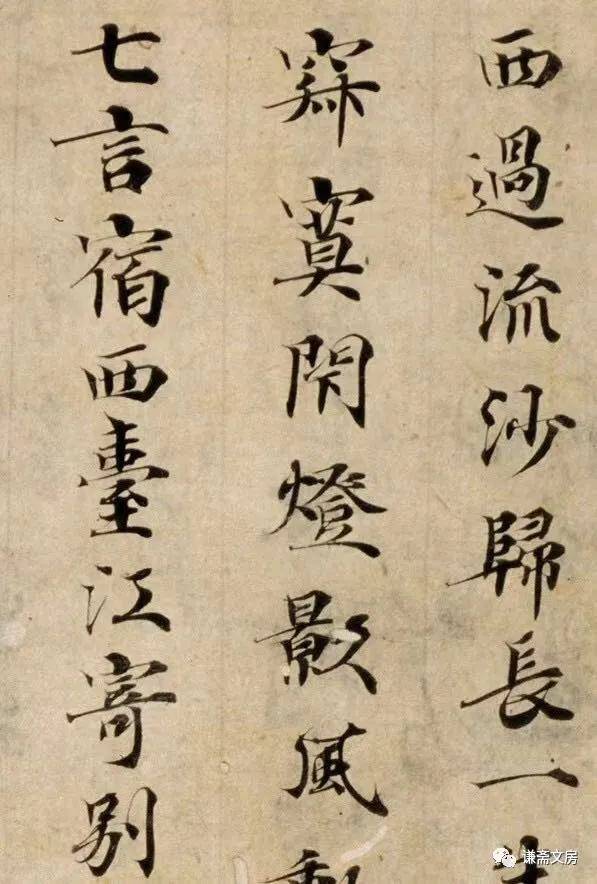 西過流沙歸長一
寂寞閇燈影風
七言宿西臺江寄別
谦斋文房